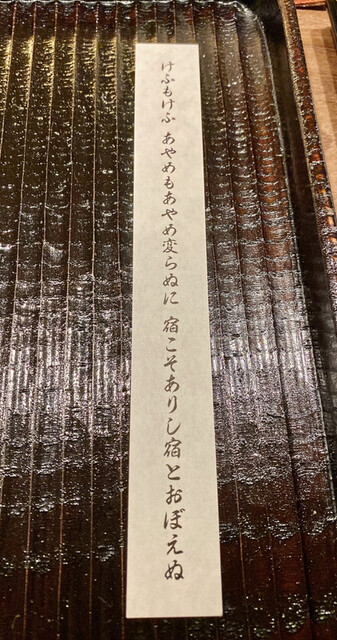 けふもけふ あやめもあやめ変らぬに 宿こそありし宿とおぼえぬ